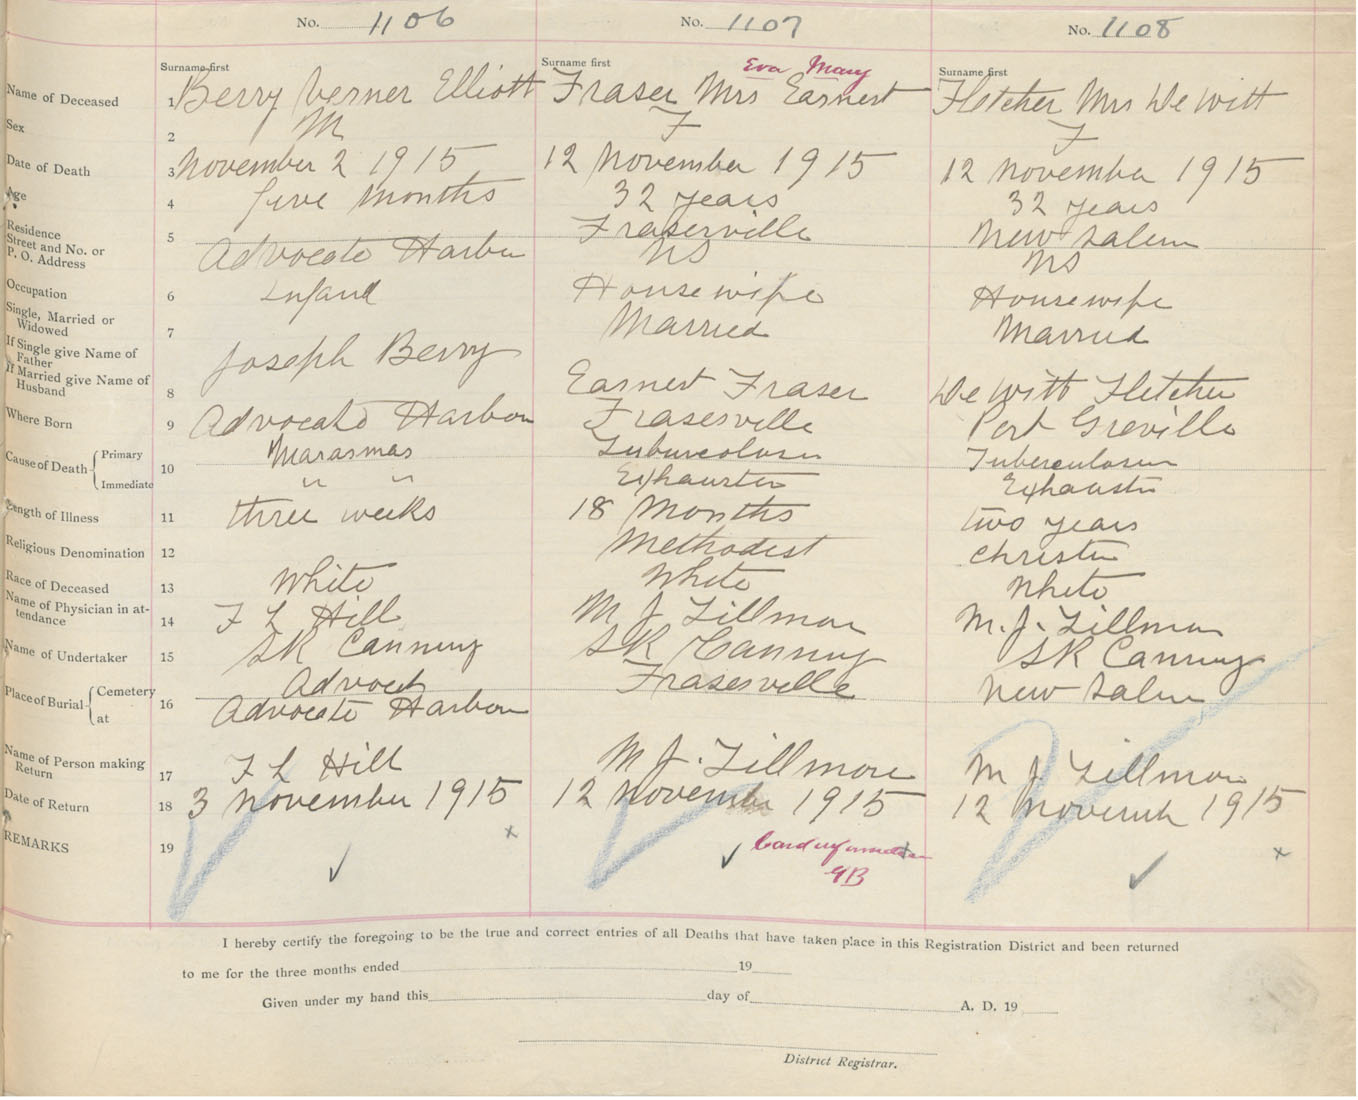 No. 1106
No. 1107
No. 1108
Surname first
Surname first
Surname first
Eva Mary
Name of Deceased 1 Berry Verner Elliott Fraser Mrs Earnest Fletcher Mrs De Witt
Sex 2 M F F
Date of Death 3 November 2 1915 12 November 1915 12 November 1915
Age 4 five months 32 years 32 years
Residence Street and No. or P. O. Address 5 Advocate Harbor Fraserville NS New Salem NS
Occupation 6 Infand Housewife Housewife
Single, Married or Widowed 7 Married Married
If Single give Name of Father Joseph Berry
If Married give Name of Husband 8 Earnest Fraser De Witt Fletcher
Where Born 9 Advocate Harbour Fraserville Port Greville
Cause of Death Primary 10 Marasmas Tuburcolosis Tuberculosis
Immediate " " Exhaustion Exhaustion
Length of Illness 11 three weeks 18 Months two years
Religious Denomination 12 Methodist Christin
Race of Deceased 13 White White White
Name of Physician in attendance 14 F L Hill M J Fillmore M. J. Fillmore
Name of Undertaker 15 SK Canning SK Canning SK Canning
Place of Burial Cemetery 16 Advocate Fraserville New Salem
at Advocate Harbour
Name of Person making Return 17 F L Hill M J. Fillmore M J Fillmore
Date of Return 18 3 November 1915 12 November 1915 12 Novemb 1915
REMARKS 19 x x x
Card information
GB
I hereby certify the foregoing to be the true and correct entries of all Deaths that have taken place in this Registration District and been returned
to me for the three months ended 19
Given under my hand this day of A. D. 19
District Registrar.